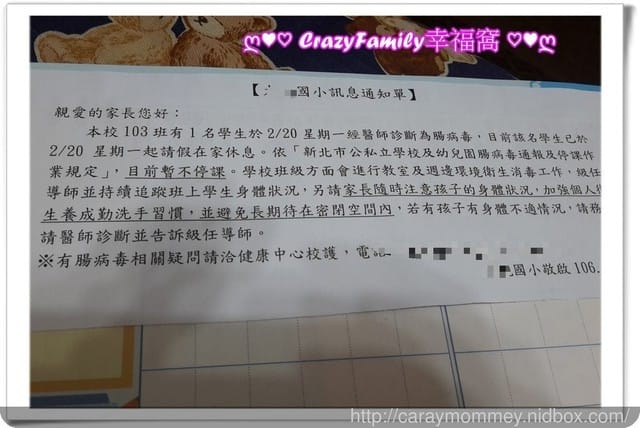 ღ♥♡ CrazyFamily幸福窩 ♡♥ღ
國小訊息通知單】
親愛的家長您好：
本校 103 班有 1 名學生於 2/20 星期一經醫師診斷為腸病毒，目前該名學生已於
2/20 星期一起請假在家休息。依「新北市公私立學校及幼兒園腸病毒通報及停課作
業規定」，目前暫不停課。學校班級方面會進行教室及週邊環境衛生消毒工作，級任
導師並持續追蹤班上學生身體狀況，另請家長隨時注意孩子的身體狀況，加強個人衛
生養成勤洗手習慣，並避免長期待在密閉空間內，若有孩子有身體不適情況，請務
請醫師診斷並告訴級任導師。
※有腸病毒相關疑問請洽健康中心校護，電話
國小敬啟 106.
http://caraymommey.nidbox.com/